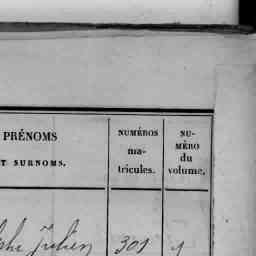 PRÉNOMS
T SURNOMS.
NUMÉROS
ma-
tricules.
NU-
MÉRO
du
volume.
Julien 301 1